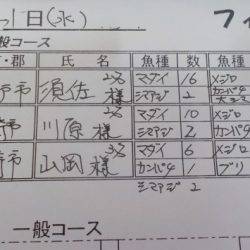 1日(水)
般コース
・郡 氏 名 魚種 数 魚種
市 須佐 様 マダイ 16 メジロ
シマアジ 2 カンパチ
市 川原 様 マダイ 10 メジロ
シマアジ 2 カンパチ
市 山岡 様 マダイ 6 メジロ
カンパチ 1 ブリ
シマアジ 2
一般コース